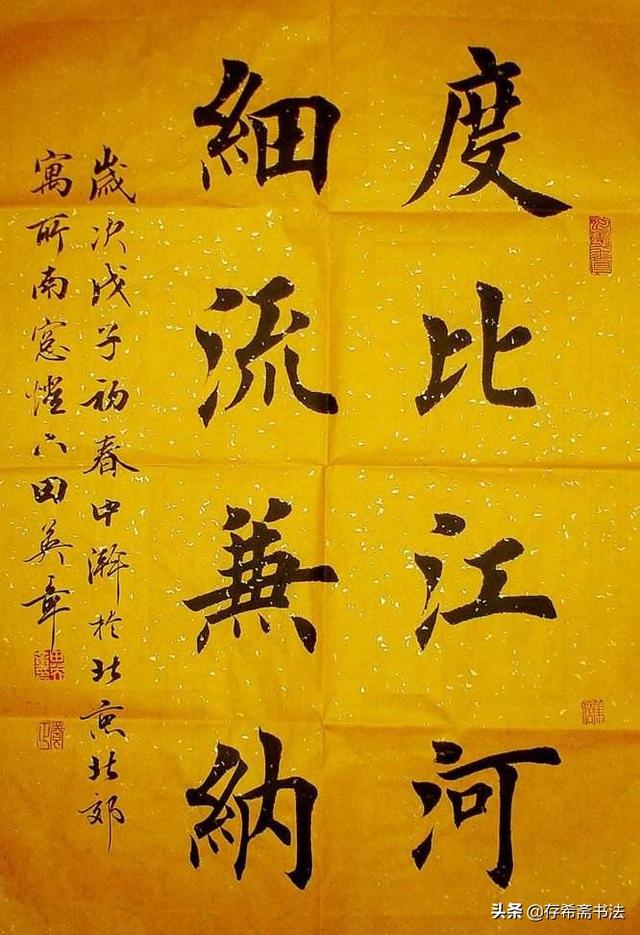 度比江河
細流兼納
歲次戊子初春中澣於北京北郊
寓所南窓燈下田英章
头条 @存希斋书法